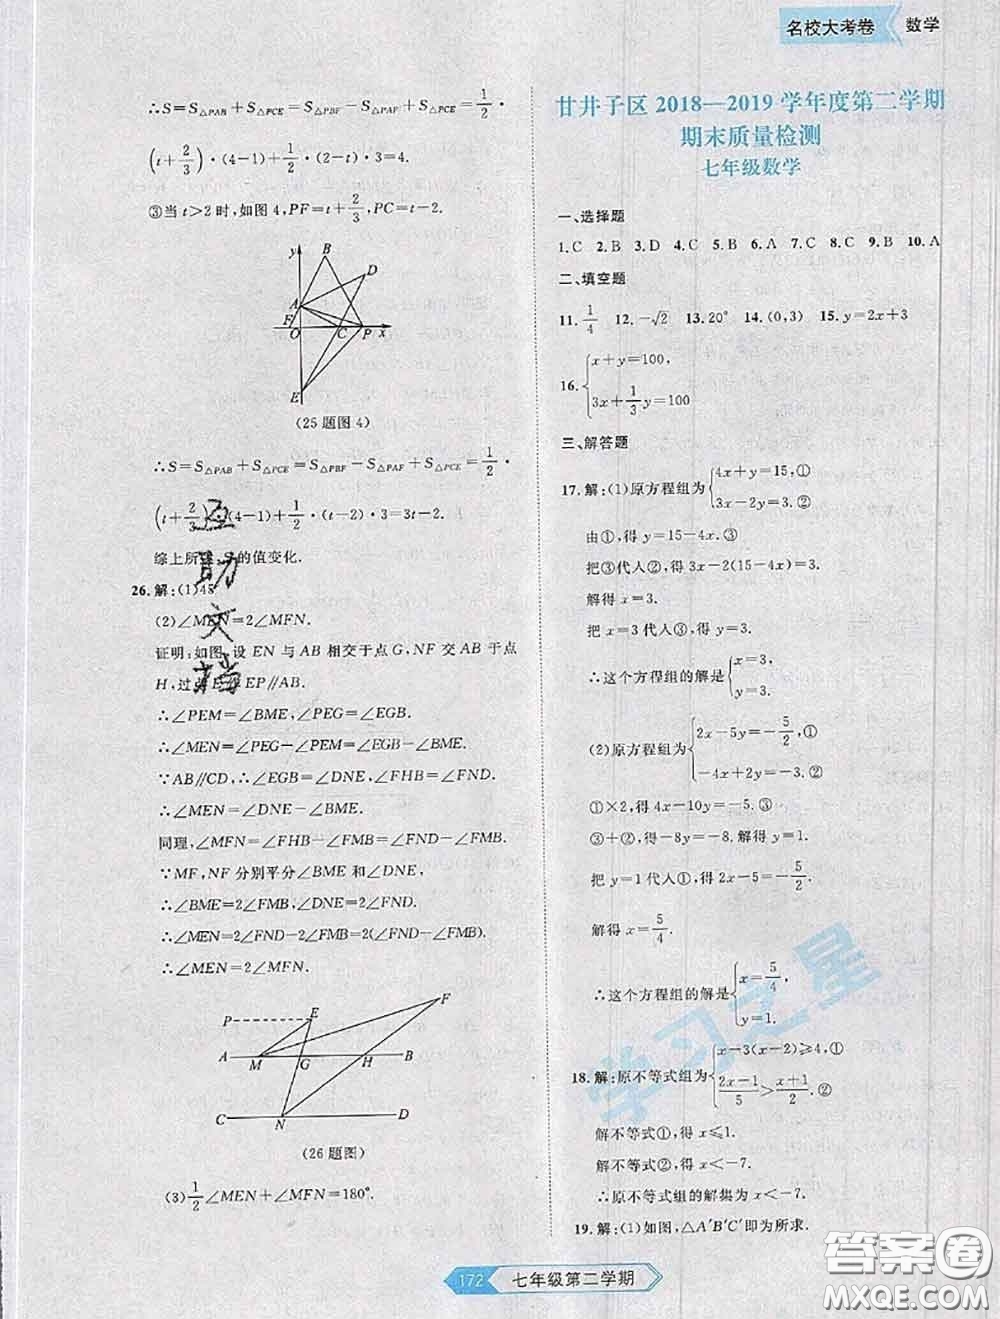 名校大考卷 数学
∴S=S△PAB+S△PCE=S△PBF-S△PAF+S△PCE=1/2·
(t+2/3)·(4-1)+1/2·(2-t)·3=4.
③当t>2时,如图4,PF=t+2/3,PC=t-2.
y B D A F O C P x E
(25题图4)
∴S=S△PAB+S△PCE=S△PBF-S△PAF+S△PCE=1/2·
(t+2/3)·(4-1)+1/2·(t-2)·3=3t-2.
综上所 的值变化.
26.解:(1)45
(2)∠MEN=2∠MFN.
证明:如图,设EN与AB相交于点G,NF交AB于点
H,过点E作EP∥AB.
∴∠PEM=∠BME,∠PEG=∠EGB.
∴∠MEN=∠PEG-∠PEM=∠EGB-∠BME.
∵AB∥CD,∴∠EGB=∠DNE,∠FHB=∠FND.
∴∠MEN=∠DNE-∠BME.
同理,∠MFN=∠FHB-∠FMB=∠FND-∠FMB.
∵MF,NF分别平分∠BME和∠DNE,
∴∠BME=2∠FMB,∠DNE=2∠FND.
∴∠MEN=2∠FND-2∠FMB=2(∠FND-∠FMB).
∴∠MEN=2∠MFN.
P E F A M G H B C N D
(26题图)
(3)1/2∠MEN+∠MFN=180°.
互助文档
甘井子区2018—2019学年度第二学期
期末质量检测
七年级数学
一、选择题
1.C 2.B 3.D 4.C 5.B 6.A 7.C 8.C 9.B 10.A
二、填空题
11.1/4 12.-√2 13.20° 14.(0,3) 15.y=2x+3
16.{x+y=100,
3x+1/3y=100
三、解答题
17.解:(1)原方程组为{4x+y=15,①
3x-2y=3.②
由①,得y=15-4x.③
把③代人②,得3x-2(15-4x)=3.
解得x=3.
把x=3代人③,得y=3.
∴这个方程组的解是{x=3,
y=3.
(2)原方程组为{2x-5y=-5/2,①
-4x+2y=-3.②
①×2,得4x-10y=-5.③
③+②,得-8y=-8.解得y=1.
把y=1代人①,得2x-5=-5/2.
解得x=5/4.
∴这个方程组的解是{x=5/4,
y=1.
18.解:原不等式组为{x-3(x-2)≥4,①
2x-1/5>x+1/2.②
解不等式①,得x≤1.
解不等式②,得x<-7.
∴原不等式组的解集为x<-7.
19.解:(1)如图,△A'B'C'即为所求.
学习之星
172 七年级第二学期
答案圈
MXQE.COM